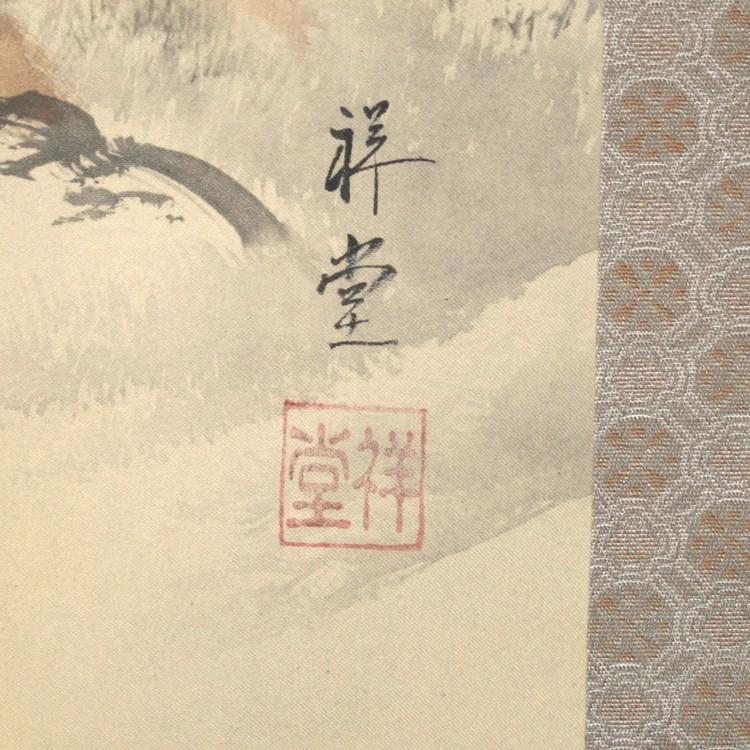 祥堂
祥堂